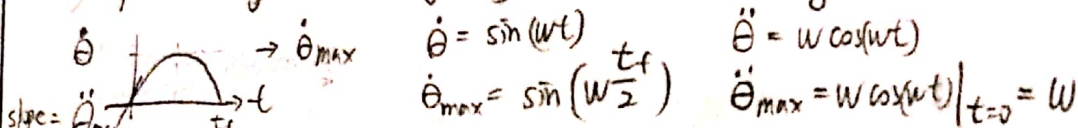 θ̇ → θ̇max θ̇ = sin(wt) θ̈ = w cos(wt)
slope = θ̈ → t tf θ̇max = sin(w tf/2) θ̈max = w cos(wt)|t=0 = w